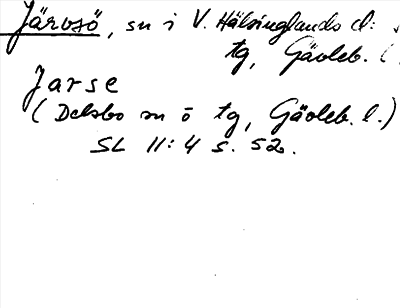 Järvsö, sn i V. Hälsinglands d:
tg, Gävleb. l
Jarse
(Delsbo sn o tg, Gävleb. l.)
SL 11:4 s. 52.